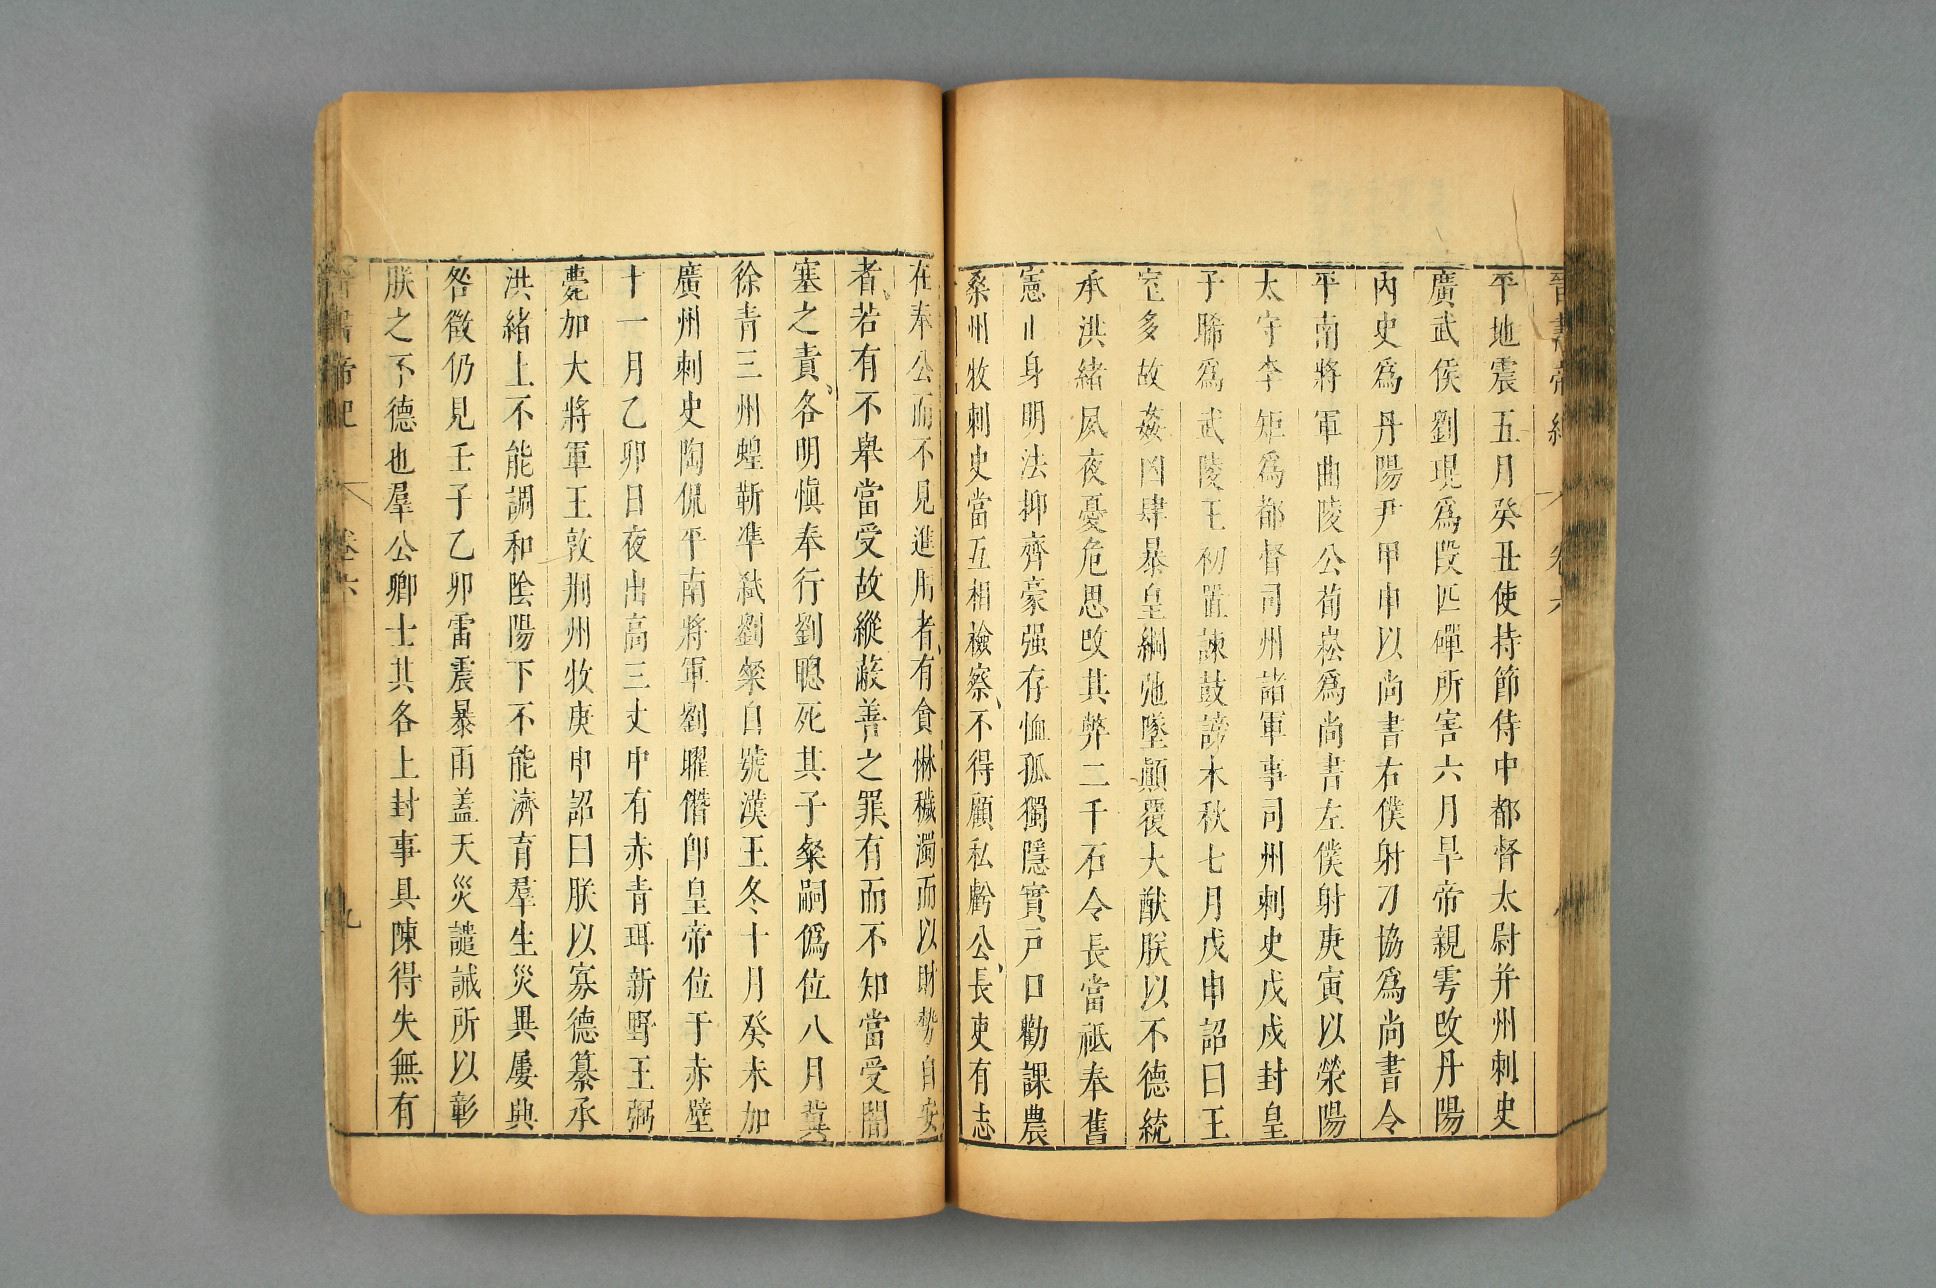 晉書帝紀 卷六
平地震五月癸丑使持節侍中都督太尉并州刺史
廣武侯劉琨爲段匹磾所害六月旱帝親雩改丹陽
內史爲丹陽尹甲申以尚書右僕射刀協爲尚書令
平南將軍曲陵公荀崧爲尚書左僕射庚寅以滎陽
太守李矩爲都督司州諸軍事司州刺史戊戌封皇
子晞爲武陵王初置諫鼓謗木秋七月戊申詔曰王
室多故姦凶肆暴皇綱弛墜顛覆大猷朕以不德統
承洪緒夙夜憂危思改其弊二千石令長當祗奉舊
憲正身明法抑齊豪强存恤孤獨隱實戶口勸課農
桑州牧刺史當互相檢察不得顧私虧公長吏有志
在奉公而不見進用者有貪惏穢濁而以財勢自安
者若有不舉當受故縱蔽善之罪有而不知當受闇
塞之責各明愼奉行劉聰死其子粲嗣僞位八月冀
徐青三州蝗靳準弒劉粲自號漢王冬十月癸未加
廣州刺史陶侃平南將軍劉曜僭卽皇帝位于赤壁
十一月乙卯日夜出高三丈中有赤青珥新野王弼
薨加大將軍王敦荆州牧庚申詔曰朕以寡德纂承
洪緒上不能調和陰陽下不能濟育羣生災異屢興
咎徵仍見壬子乙卯雷震暴雨蓋天災譴誡所以彰
朕之不德也羣公卿士其各上封事具陳得失無有
晉書帝紀 卷六 九